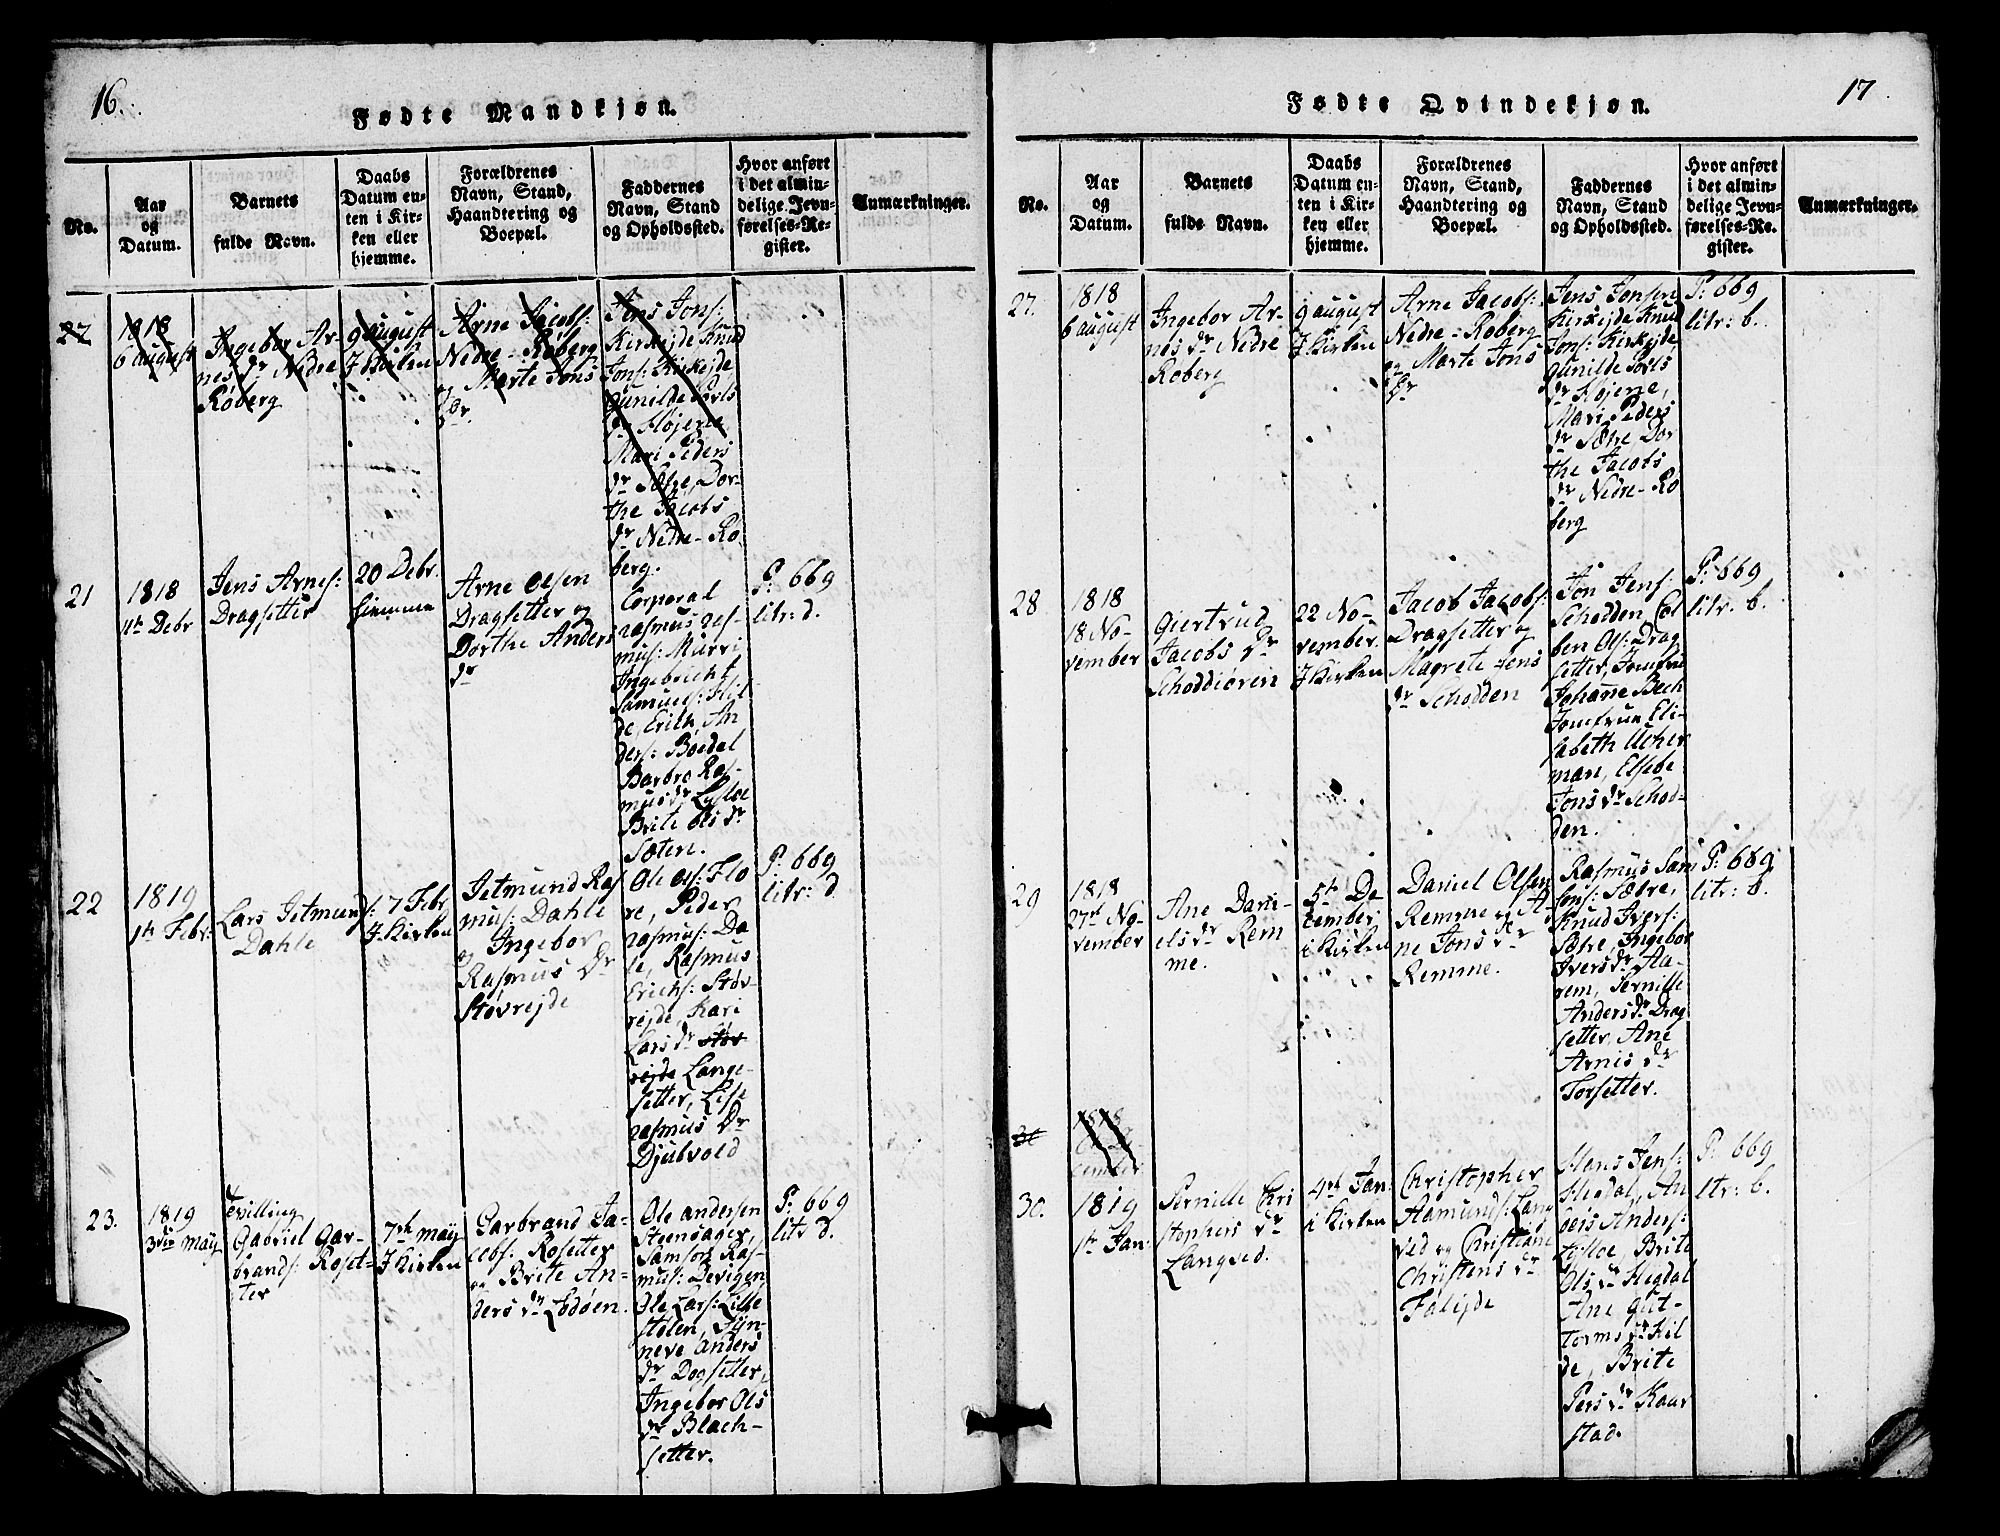 16.
Fødte Mandkjøn.
No.
Aar
og
Datum.
Barnets
fulde Navn.
Daabs
Datum en-
ten i Kir-
ken eller
hjemme.
Forældrenes
Navn, Stand,
Haandtering og
Boepæl.
Faddernes
Navn, Stand
og Opholdssted.
Hvor anført
i det almin-
delige Jevn-
førelses-Re-
gister.
Anmærkninger.
27
1818
6 august
Ingebor Ar-
nes dr Nedre
Røberg
9 august
J Kirken
Arne Jacobs:
Nedre-Røberg
og Marte Jons
dr.
Jens Jons:
Kirkejde Knud
Jons: Kirkejde
Gunilde Povls
dr Højene
Mari Peders
dr Sætre, Dor-
the Jacobs
dr Nedre-Rø-
berg.
21
1818
4te Debr
Jens Arnes:
Dragsetter
20 Debr.
hiemme
Arne Olsen
Dragsetter og
Dorthe Anders
dr
Corporal
Rasmus Ras-
mus: Murri
Ingebricht
Samuels: Hil-
de, Erich An-
ders: Bøedal
Barbro Ras-
mus dr Lysloe
Brite Ols dr
Sæten.
P: 669
litr: d.
22
1819
1te Febr:
Lars Jetmund
Dahle
s: 7 Febr
J Kirken
Jetmund Ras
mus: Dahle
og Ingebor
Rasmus Dr
Støvrejde
Ole Ols: Flo
re, Peder
Rasmus: Da
le, Rasmus
Erichs: Støv-
rejde, Kari
Lars dr Støv
rejde Lange-
setter, Lisp
Rasmus Dr
Djubvold
P: 669
litr: d
23.
1819
3die May
Tvilling
Gabriel Gar-
brands: Roset-
ter
7de may
J Kirken
Garbrand Ja-
cobs: Rosetter
og Brite An-
ders dr Lodøen.
Ole Andersen
Steensager,
Samson Ras-
mus: Devigen
Ole Lars: Lille
stølen, Syn-
neve Anders
dr Dogsetter,
Ingebor Ols
dr Blach-
setter.
P: 669
litr d.
17
Fødte Qvindekjøn.
No.
Aar
og
Datum.
Barnets
fulde Navn.
Daabs
Datum en-
ten i Kir-
ken eller
hjemme.
Forældrenes
Navn, Stand,
Haandtering og
Boepæl.
Faddernes
Navn, Stand
og Opholdssted.
Hvor anført
i det almin-
delige Jevn-
førelses-Re-
gister.
Anmærkninger.
27.
1818
6 august
Ingebor Ar-
nes dr Nedre
Røberg
9 august
J Kirken
Arne Jacobs:
Nedre-Røberg
og Marte Jons
dr
Jens Jonsen
Kirkejde Knud
Jons: Kirkejde
Gunilde Povls
dr Højene,
Mari Peders
dr Sætre Dor
the Jacobs
dr Nedre-Rø
berg
P: 669
litr: b.
28
1818
18 No-
vember
Giertrud
Jacobs dr
Schoddioren
22 No-
vember.
J Kirken
Jacob Jacobs:
Dragsetter og
Magrete Jens
dr Schodden
Jon Jens:
Schodden Col
ben Ols: Drag
setter, Jomfru
Johanne Bech
Jomfrue Eli-
sabeth Ucher
man, Elsebe
Jons dr Schod-
den.
P: 669
litr: b.
29
1818
27de No-
vember
Ane Dani-
els dr Rem
me.
5te De
cember
i Kirken
Daniel Olsen
Remme og A-
ne Jons dr
Remme.
Rasmus Sam
sons: Sætre,
Knud Ivers:
Sætre, Ingebor
Ivers dr Aa-
rem, Pernille
Anders dr Drag
setter, Ane
Arnis dr
Torsetter.
P: 669
litr: b.
30
1818
cember
30.
1819
1te Jan:
Pernille Chri
stophers dr
Langsed.
4de Jan:
i Kirken
Christopher
Aamunds: Lang
sed og Christiane
Christens dr
Faleide
Hans Jens:
Hegdal, An
ders Anders:
Lysloe, Brite
Ols dr Hegdal
Ane Gut-
torms dr Hil
de, Brite
Pers dr Kaar
stad.
P: 669
ltr: b.